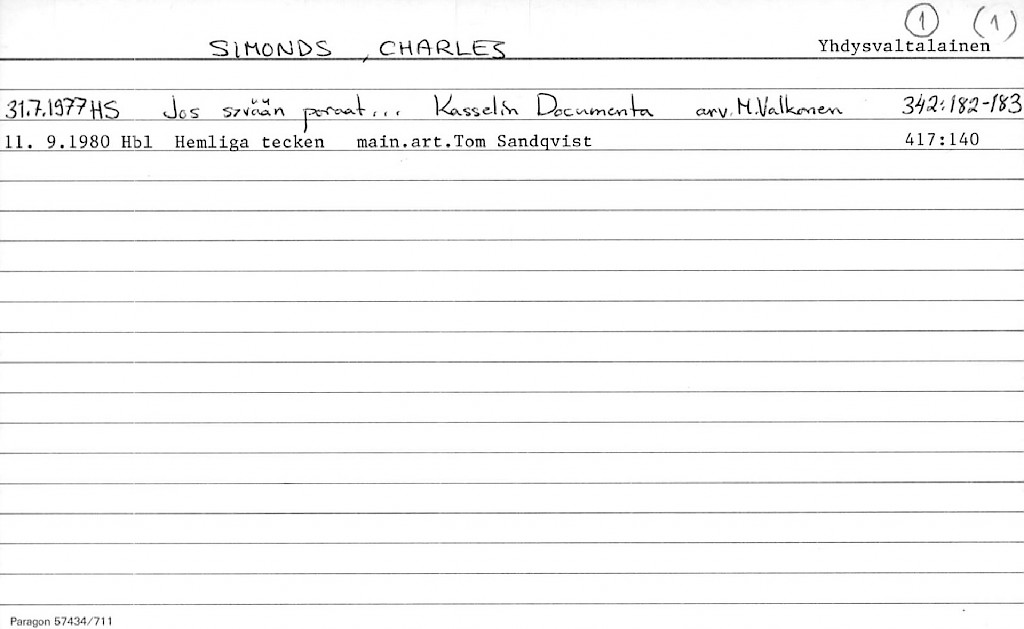 ① (1)
SIMONDS, CHARLES Yhdysvaltalainen
31.7.1977 HS Jos syvään poraat... Kasselin Documenta arv. M. Valkonen 342:182-183
11. 9.1980 Hbl Hemliga tecken main.art.Tom Sandqvist 417:140
Paragon 57434/711